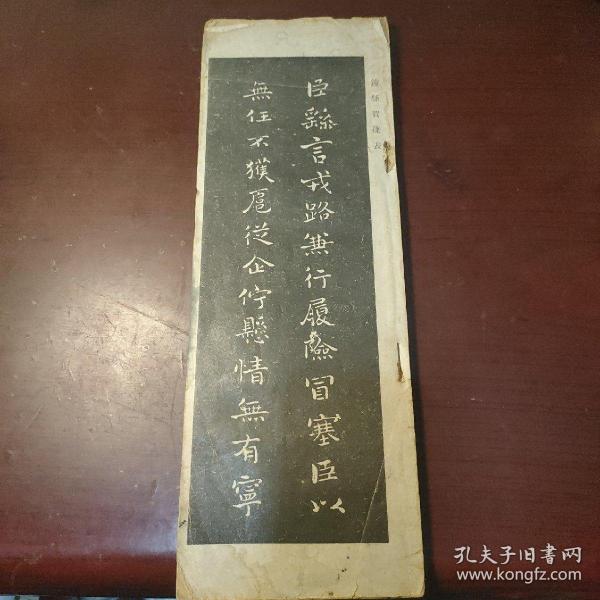 鍾繇賀捷表
臣繇言戎路兼行履險冒塞臣以
無任不獲扈從企佇懸情無有寧
孔夫子旧书网
www.kongfz.com